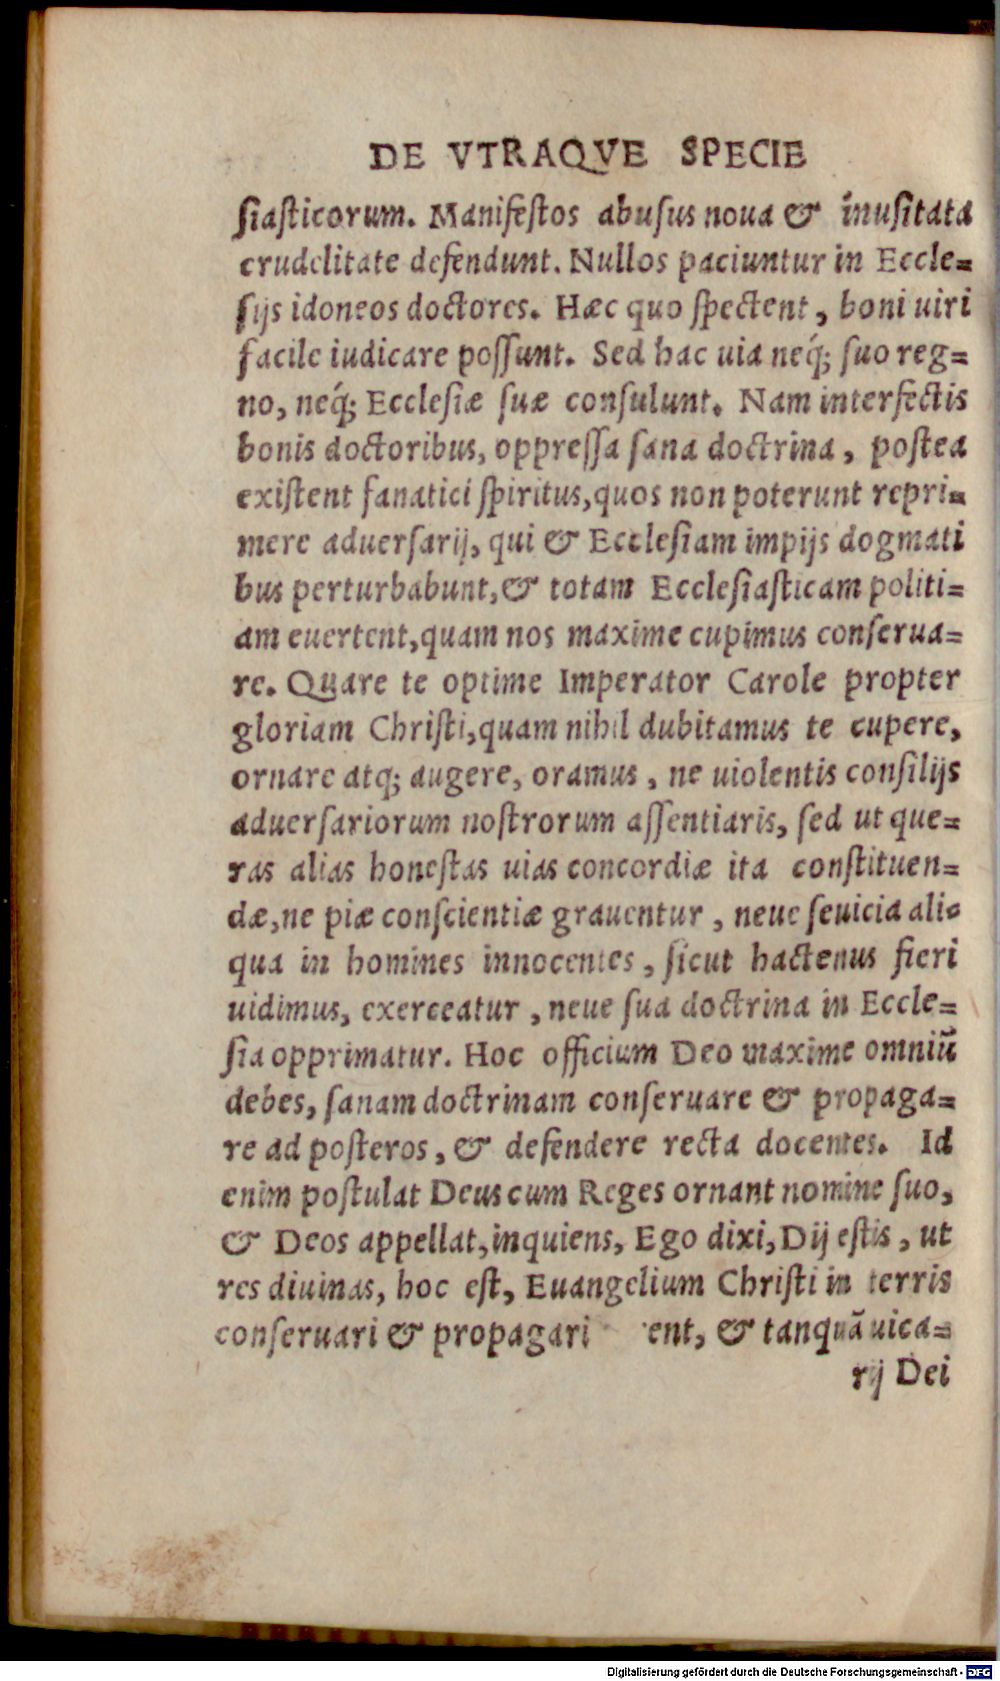 DE VTRAQVE SPECIE
siasticorum. Manifestos abusus noua & inusitata
crudelitate defendunt. Nullos paciuntur in Eccle=
sijs idoneos doctores. Hæc quo spectent, boni uiri
facile iudicare possunt. Sed hac uia neq́; suo reg=
no, neq́; Ecclesiæ suæ consulunt. Nam interfectis
bonis doctoribus, oppressa sana doctrina, postea
existent fanatici spiritus, quos non poterunt repri=
mere aduersarij, qui & Ecclesiam impijs dogmati
bus perturbabunt, & totam Ecclesiasticam politi=
am euertent, quam nos maxime cupimus conserua=
re. Quare te optime Imperator Carole propter
gloriam Christi, quam nihil dubitamus te cupere,
ornare atq; augere, oramus, ne uiolentis consilijs
aduersariorum nostrorum assentiaris, sed ut que=
ras alias honestas uias concordiæ ita constituen=
dæ, ne piæ conscientiæ grauentur, neue seuicia ali=
qua in homines innocentes, sicut hactenus fieri
uidimus, exerceatur, neue sua doctrina in Eccle=
sia opprimatur. Hoc officium Deo maxime omniũ
debes, sanam doctrinam conseruare & propaga=
re ad posteros, & defendere recta docentes. Id
enim postulat Deus cum Reges ornant nomine suo,
& Deos appellat, inquiens, Ego dixi, Dij estis, ut
res diuinas, hoc est, Euangelium Christi in terris
conseruari & propagari ent, & tanquã uica=
rij Dei
Digitalisierung gefördert durch die Deutsche Forschungsgemeinschaft - DFG